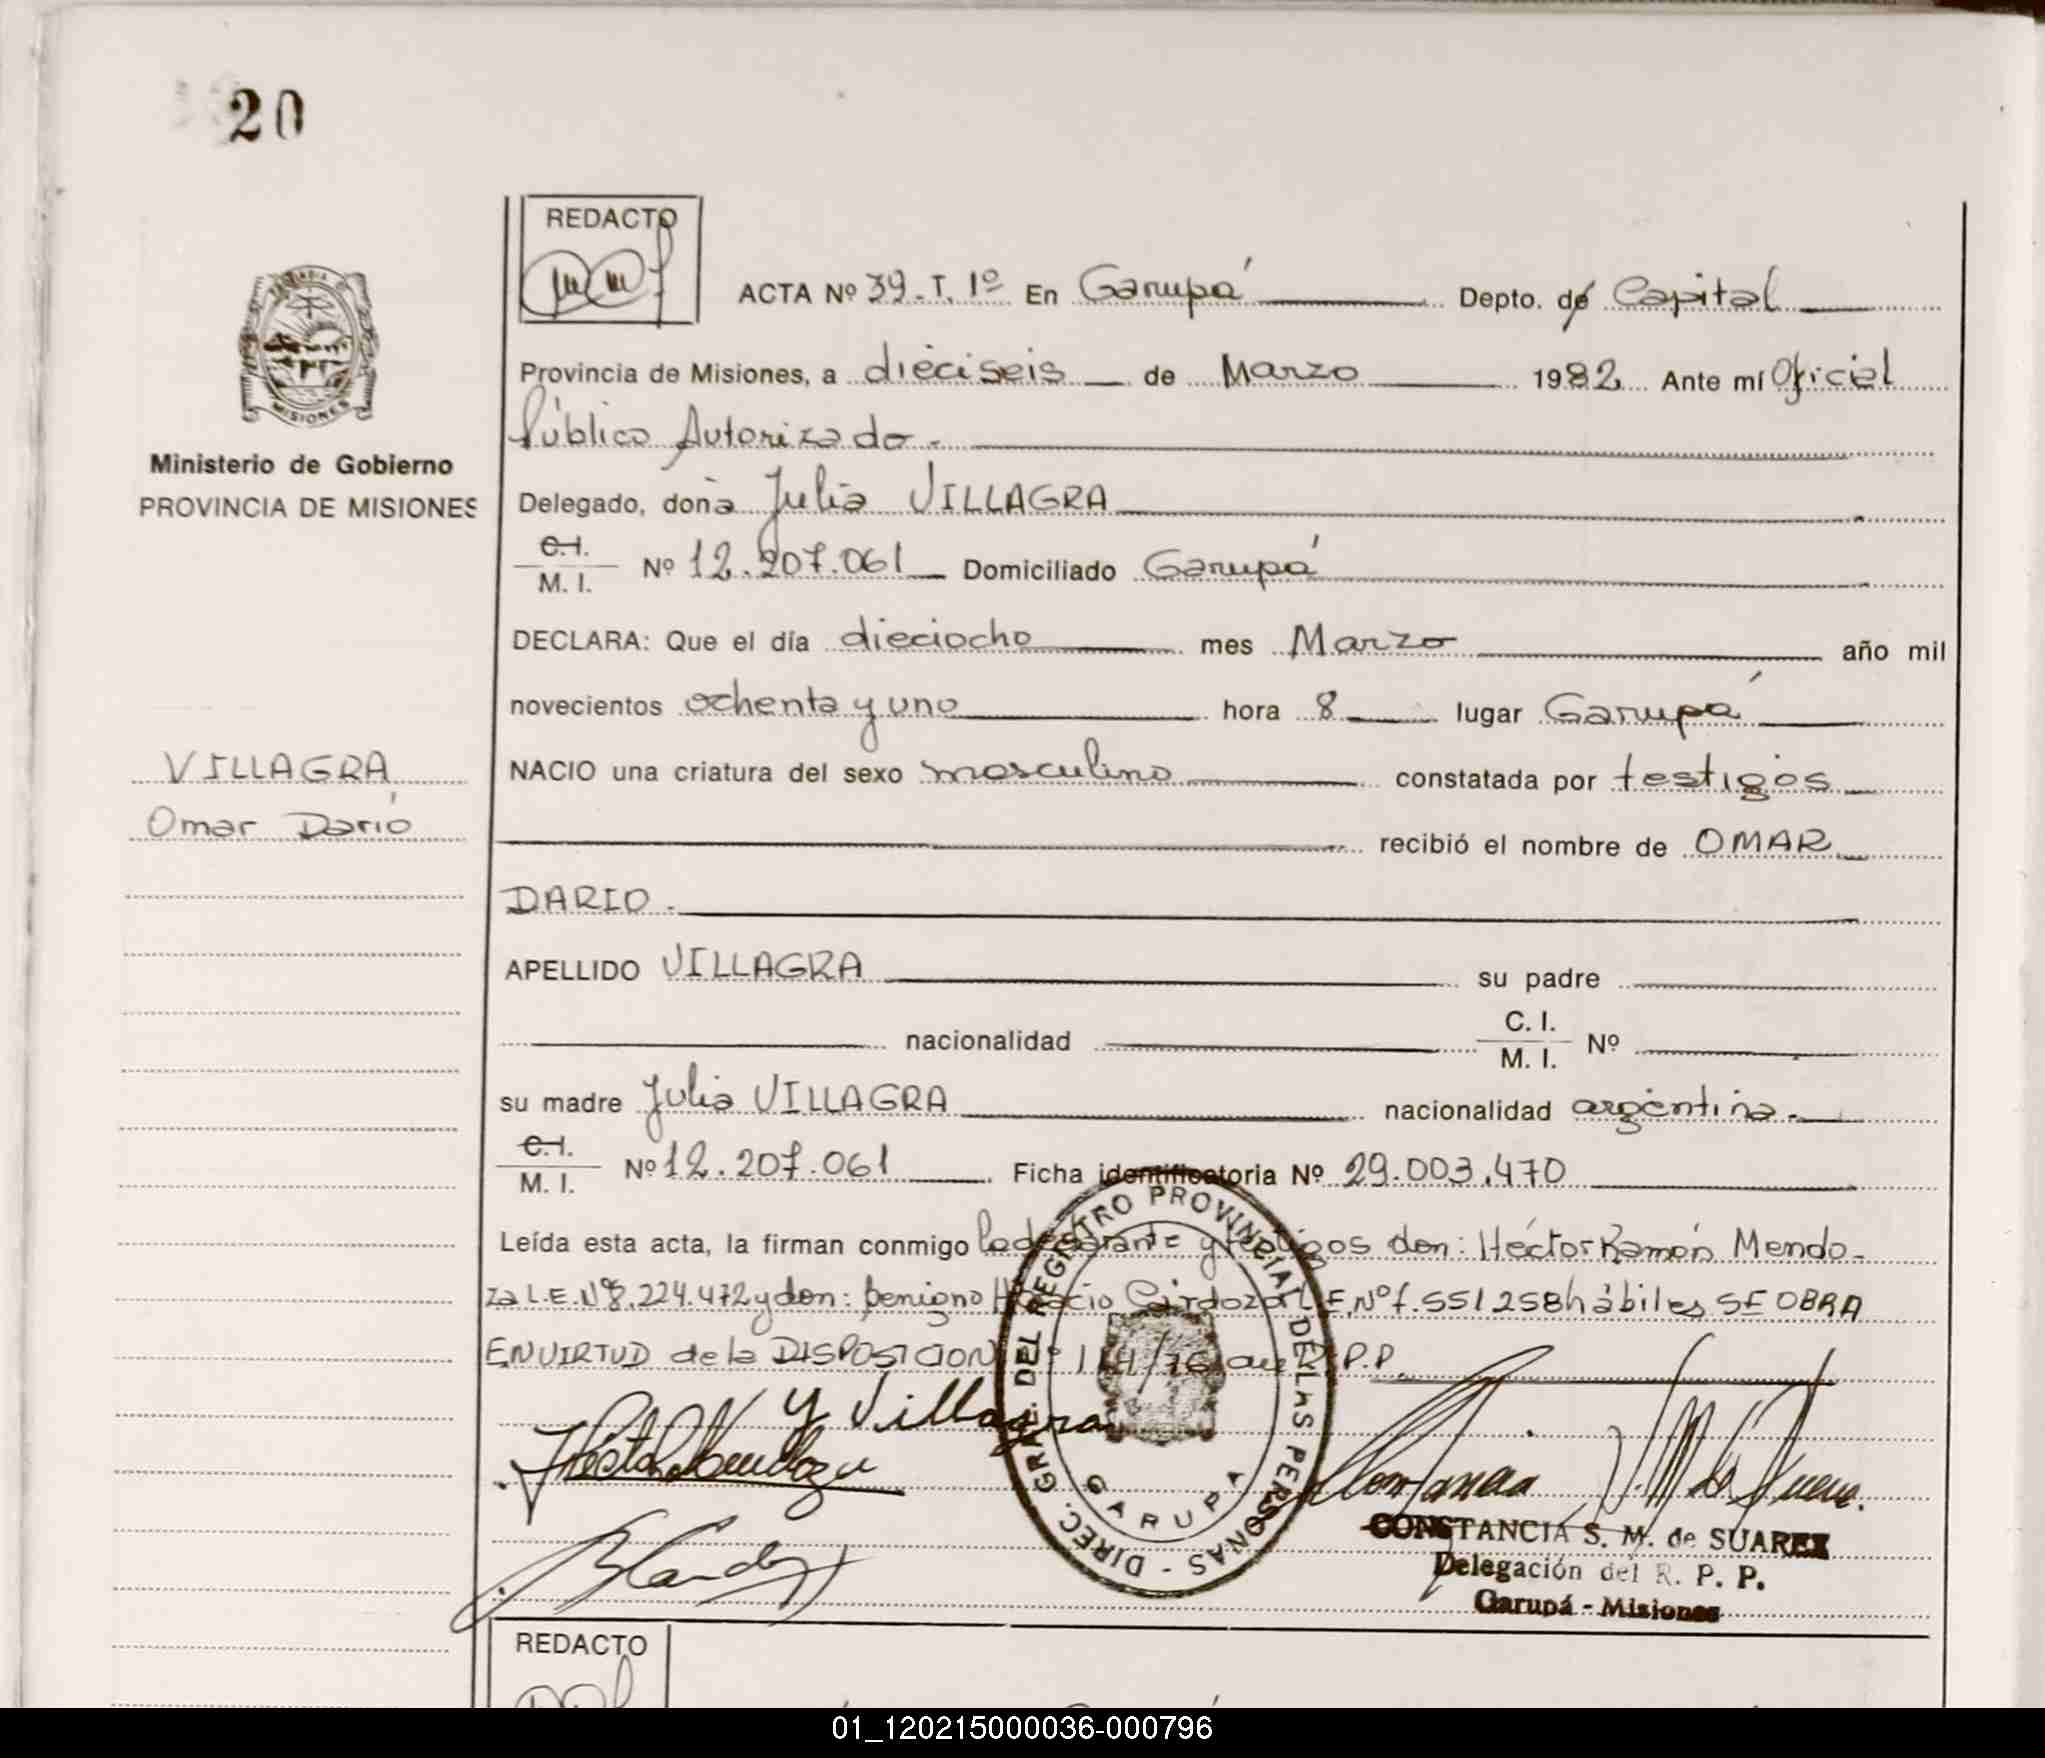 20
REDACTO
ACTA Nº 39.T.1º En Garupá Depto. de Capital
Provincia de Misiones, a dieciseis de Marzo 1982 Ante mí Oficial
Público Autorizado.
Delegado, doña Julia VILLAGRA
C.I.
M. I. Nº 12.207.061 Domiciliado Garupá
DECLARA: Que el día dieciocho mes Marzo año mil
novecientos ochenta y uno hora 8 lugar Garupá
NACIO una criatura del sexo masculino constatada por testigos
recibió el nombre de OMAR
DARIO.
APELLIDO VILLAGRA su padre
nacionalidad C. I.
M. I. Nº
su madre Julia VILLAGRA nacionalidad argentina.
C.I.
M. I. Nº 12.207.061 Ficha identificatoria Nº 29.003.470
Leída esta acta, la firman conmigo la declarante y testigos don: Héctor Ramón Mendo-
za L.E.Nº8.224.472 y don: benigno Horacio Cardozo L.E.Nº7.551258 hábiles SE OBRA
EN VIRTUD de la DISPOSICION Nº /76 R.P.P.
y Villagra
Ministerio de Gobierno
PROVINCIA DE MISIONES
MISIONES
VILLAGRA
Omar Darío
DIREC. GRAL. DEL REGISTRO PROVINCIAL DE LAS PERSONAS -
GARUPA
CONSTANCIA S. M. de SUAREZ
Delegación del R. P. P.
Garupá - Misiones
REDACTO
01_120215000036-000796